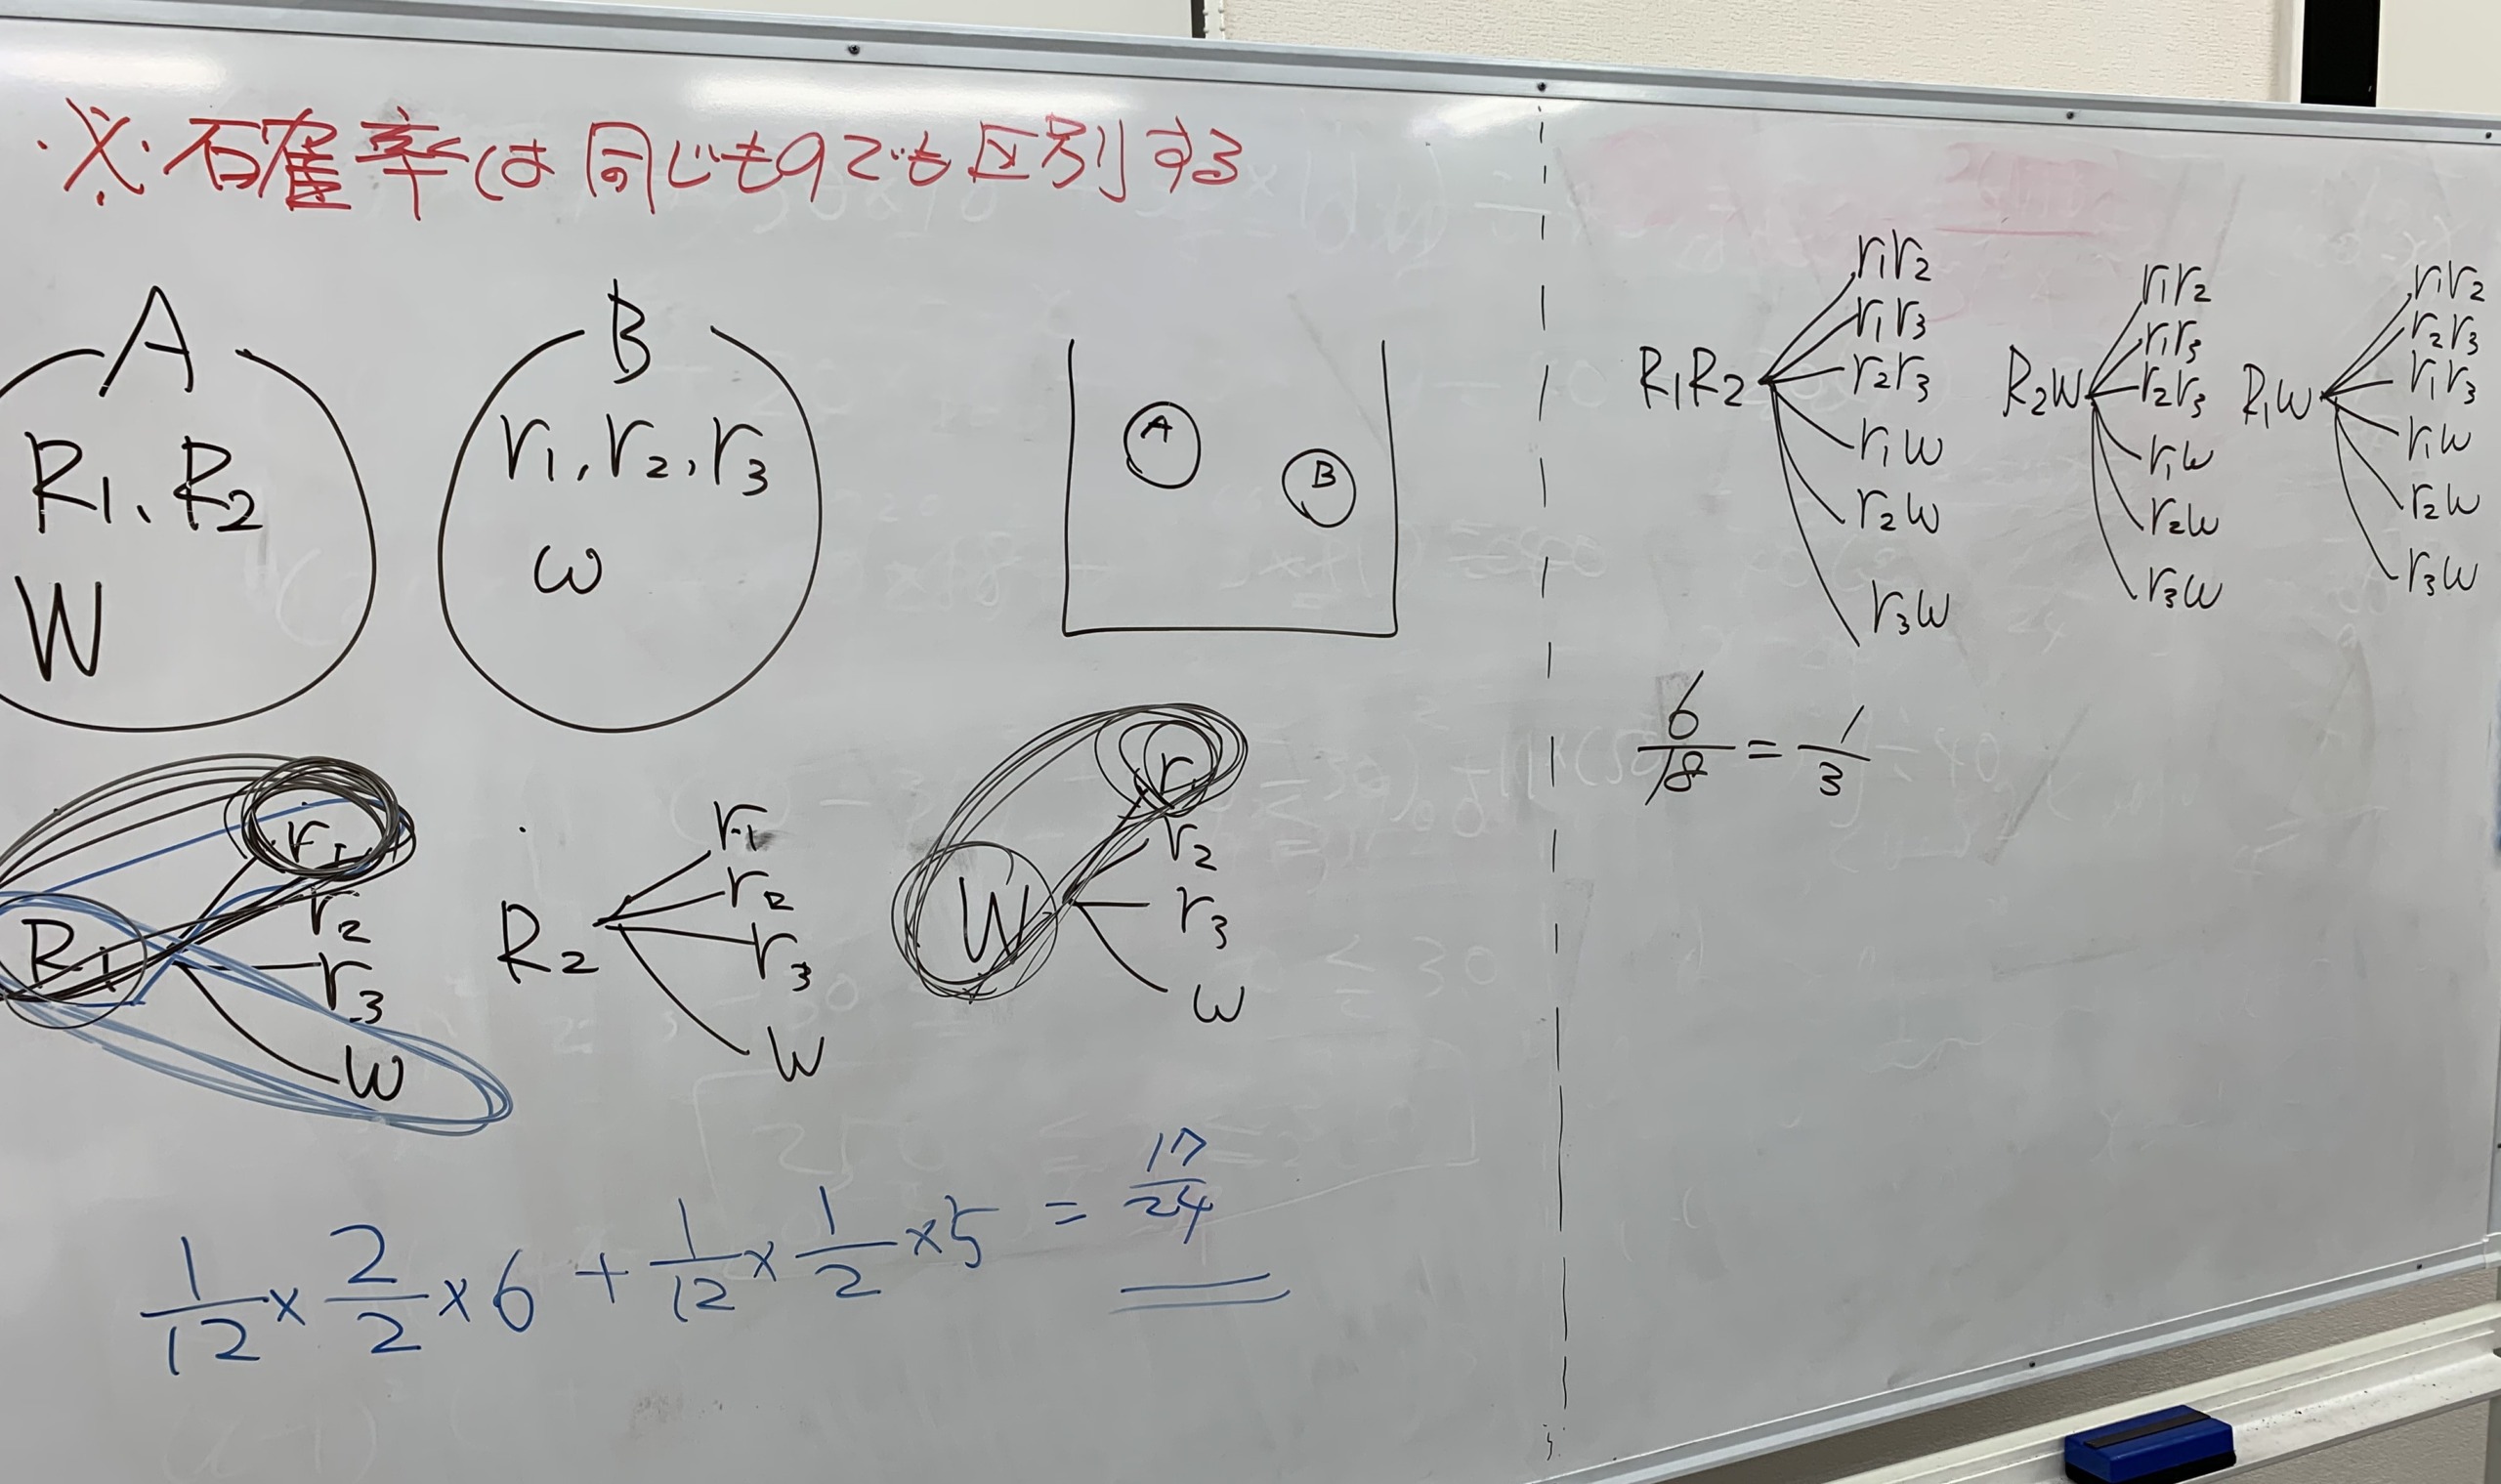 ※ 確率は同じものでも区別する
A
R1、R2
W
B
r1, r2, r3
w
A
B
R1
r1
r2
r3
w
R2
r1
r2
r3
w
W
r1
r2
r3
w
1/12 × 2/2 × 6 + 1/12 × 1/2 × 5 = 17/24
R1R2
r1r2
r1r3
r2r3
r1w
r2w
r3w
R2W
r1r2
r1r3
r2r3
r1w
r2w
r3w
R1W
r1r2
r2r3
r1r3
r1w
r2w
r3w
6/18 = 1/3